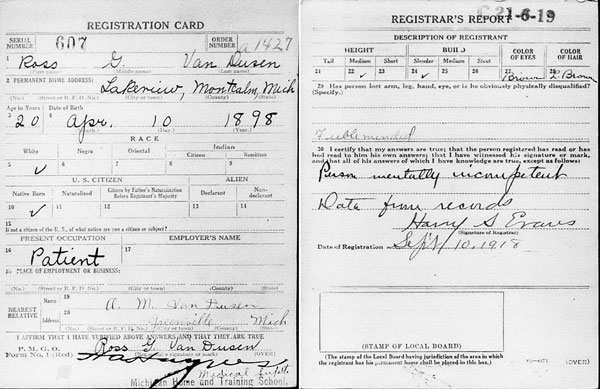 REGISTRATION CARD
SERIAL NUMBER 607 ORDER NUMBER a1427
1 Ross G. Van Dusen
(First name) (Middle name) (Last name)
2 PERMANENT HOME ADDRESS:
Lakeview, Montcalm, Mich
(No.) (Street or R. F. D. No.) (City or town) (County) (State)
Age in Years Date of Birth
3 20 4 Apr. 10 1898
RACE
White Negro Oriental Indian
Citizen Noncitizen
5 ✓ 6 7 8 9
U. S. CITIZEN ALIEN
Native Born Naturalized Citizen by Father's Naturalization Before Registrant's Majority Declarant Non-declarant
10 ✓ 11 12 13 14
15
If not a citizen of the U. S., of what nation are you a citizen or subject?
PRESENT OCCUPATION EMPLOYER'S NAME
16 Patient 17
18 PLACE OF EMPLOYMENT OR BUSINESS:
(No.) (Street or R. F. D. No.) (City or town) (County) (State)
NEAREST RELATIVE
Name 19 A. M. Van Dusen
Address 20 Greenville Mich
(No.) (Street or R. F. D. No.) (City or town) (State)
I AFFIRM THAT I HAVE VERIFIED ABOVE ANSWERS AND THAT THEY ARE TRUE
P. M. G. O.
Form No. 1 (Red) Ross G. Van Dusen (OVER)
Medical Supt
Michigan Home and Training School.
REGISTRAR'S REPORT 21-6-19
DESCRIPTION OF REGISTRANT
HEIGHT BUILD COLOR OF EYES COLOR OF HAIR
Tall Medium Short Slender Medium Stout
21 22 ✓ 23 24 ✓ 25 26 27 Brown 28 L. Brown
29 Has person lost arm, leg, hand, eye, or is he obviously physically disqualified?
(Specify.)
Feebleminded
30 I certify that my answers are true; that the person registered has read or has had read to him his own answers; that I have witnessed his signature or mark, and that all of his answers of which I have knowledge are true, except as follows:
Person mentally incompetent
Data from records
Harry S. Evans
(Signature of Registrar)
Date of Registration Sept 10, 1918
(STAMP OF LOCAL BOARD)
(The stamp of the Local Board having jurisdiction of the area in which the registrant has his permanent home shall be placed in this box.)
(OVER)